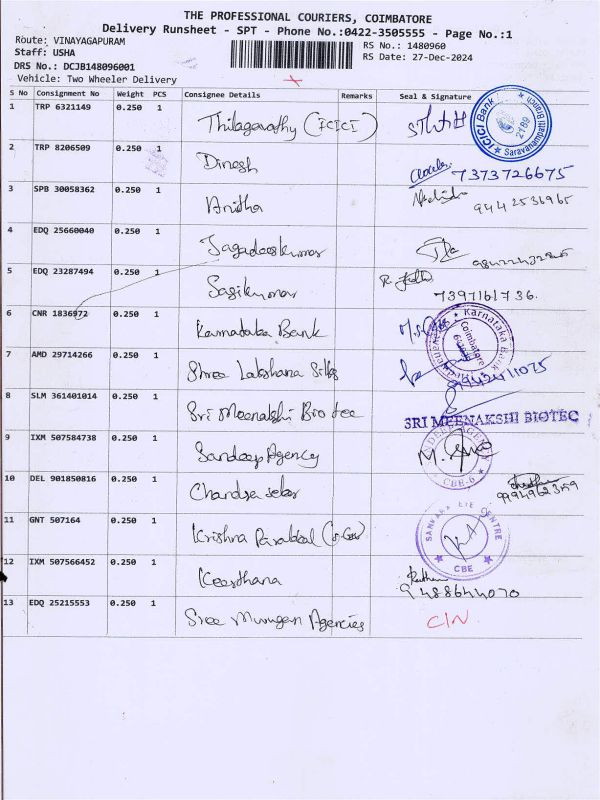 THE PROFESSIONAL COURIERS, COIMBATORE
Delivery Runsheet - SPT - Phone No.:0422-3505555 - Page No.:1
Route: VINAYAGAPURAM
Staff: USHA
DRS No.: DCJB148096001
Vehicle: Two Wheeler Delivery
RS No.: 1480960
RS Date: 27-Dec-2024
S No Consignment No Weight PCS Consignee Details Remarks Seal & Signature
1 TRP 6321149 0.250 1 Thilagavathy (ICICI)
ICICI Bank Saravanampatti Branch 2189
2 TRP 8206509 0.250 1 Dinesh 7373726675
3 SPB 30058362 0.250 1 Anitha 9442536965
4 EDQ 25660040 0.250 1 Jagadeeskumar
5 EDQ 23287494 0.250 1 Sasikumar 7397161736.
6 CNR 1836972 0.250 1 Karnataka Bank
Karnataka Bank Coimbatore
7 AMD 29714266 0.250 1 Shree Lakshana Silks
8 SLM 361401014 0.250 1 Sri Meenakshi Bio tec SRI MEENAKSHI BIOTEC
9 IXM 507584738 0.250 1 Sandeep Agency
CBE-6
10 DEL 901850816 0.250 1 Chandrasekar
11 GNT 507164 0.250 1 Krishna
SANKARA EYE CENTRE CBE
12 IXM 507566452 0.250 1 Keerthana 9488644070
13 EDQ 25215553 0.250 1 Sree Murugan Agencies CIN